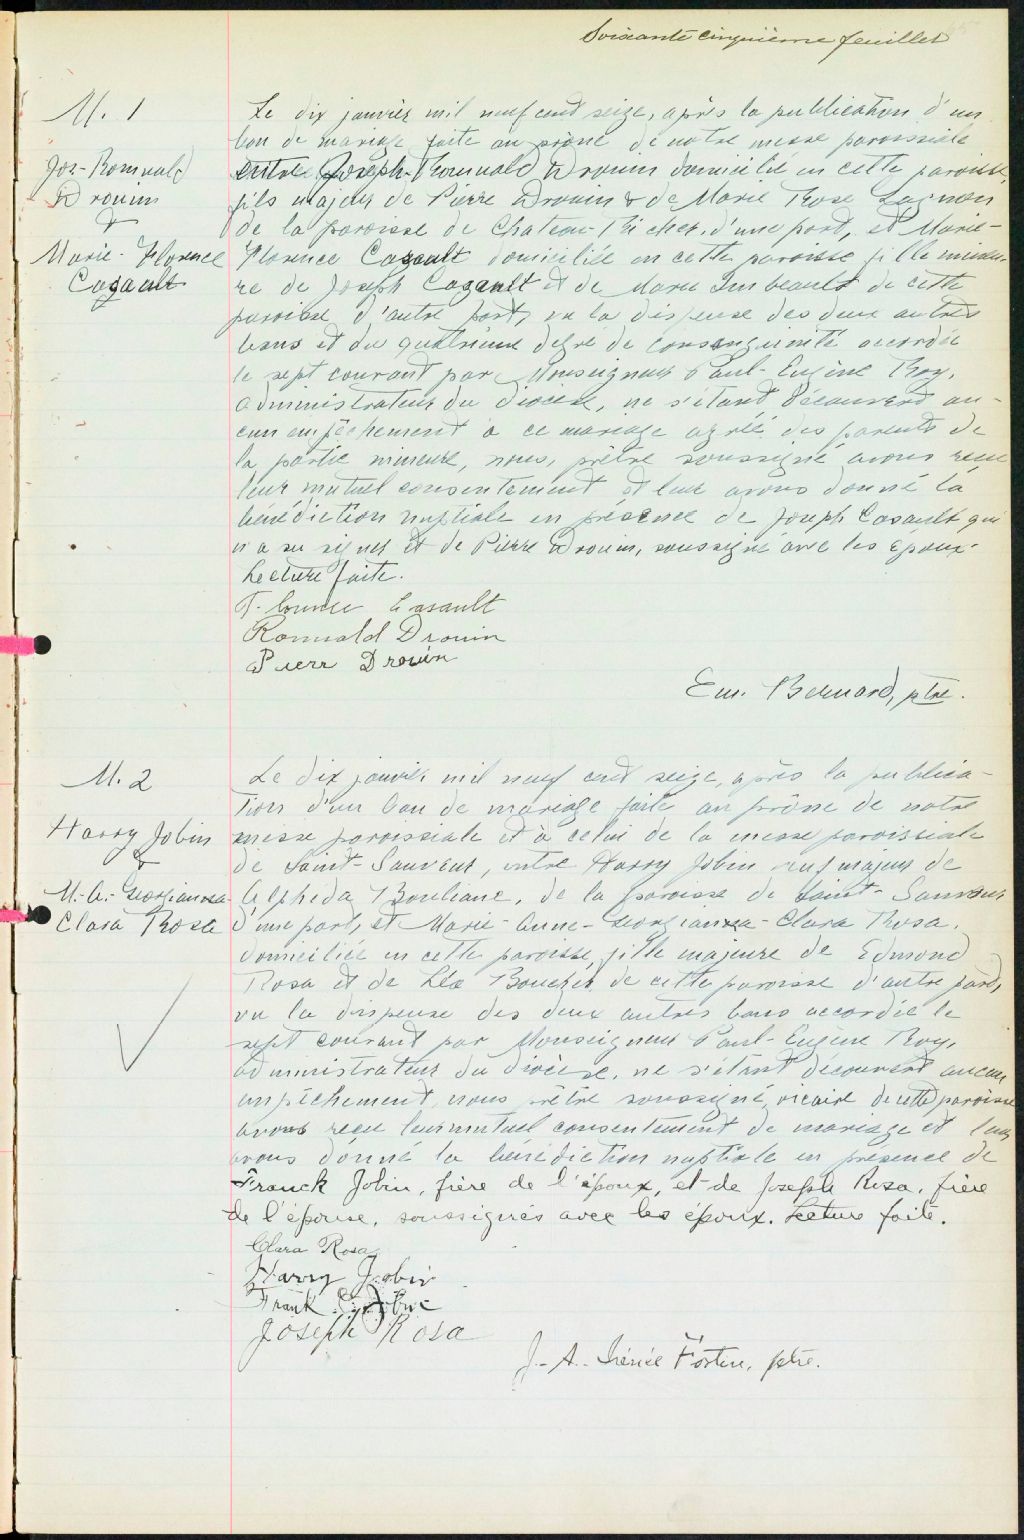 Soixante cinquième feuillet
M. 1
Jos-Romuald
Drouin
&
Marie-Florence
Casault
Le dix janvier mil neuf cent seize, après la publication d'un
ban de mariage faite au prône de notre messe paroissiale
entre Joseph-Romuald Drouin domicilié en cette paroisse,
fils majeur de Pierre Drouin & de Marie Rose Gagnon
de la paroisse de Chateau-Richer, d'une part, et Marie-
Florence Casault domiciliée en cette paroisse fille mineu-
re de Joseph Casault et de Marie Imbeault de cette
paroisse d'autre part, vu la dispense des deux autres
bans et du quatrième degré de consanguinité accordée
le sept courant par Monseigneur Paul-Eugène Roy,
administrateur du diocèse, ne s'étant découvert au-
cun empêchement à ce mariage agréé des parents de
la partie mineure, nous, prêtre soussigné avons reçu
leur mutuel consentement et leur avons donné la
bénédiction nuptiale en présence de Joseph Casault qui
n'a su signer et de Pierre Drouin, soussigné avec les époux.
Lecture faite.
Florence Casault
Romuald Drouin
Pierr Drouin
Em. Bernard, ptre.
M. 2
Harry Jobin
&
M.-A.-Georgianna-
Clara Rosa
Le dix janvier mil neuf cent seize, après la publica-
tion d'un ban de mariage faite au prône de notre
messe paroissiale et à celui de la messe paroissiale
de Saint-Sauveur, entre Harry Jobin veuf majeur de
Alphéda Bouliane, de la paroisse de Saint-Sauveur
d'une part, et Marie-Anne-Georgianna-Clara Rosa,
domiciliée en cette paroisse, fille majeure de Edmond
Rosa et de Léa Boucher de cette paroisse d'autre part,
vu la dispense des deux autres bans accordée le
sept courant par Monseigneur Paul-Eugène Roy,
administrateur du diocèse, ne s'étant découvert aucun
empêchement, nous prêtre soussigné, vicaire de cette paroisse
avons reçu leur mutuel consentement de mariage et leur
avons donné la bénédiction nuptiale en présence de
Franck Jobin, frère de l'époux, et de Joseph Rosa, frère
de l'épouse, soussignés avec les époux. Lecture faite.
Clara Rosa
Harry Jobin
Frank Jobin
Joseph Rosa
J.-A.-Irénée Fortin, ptre.